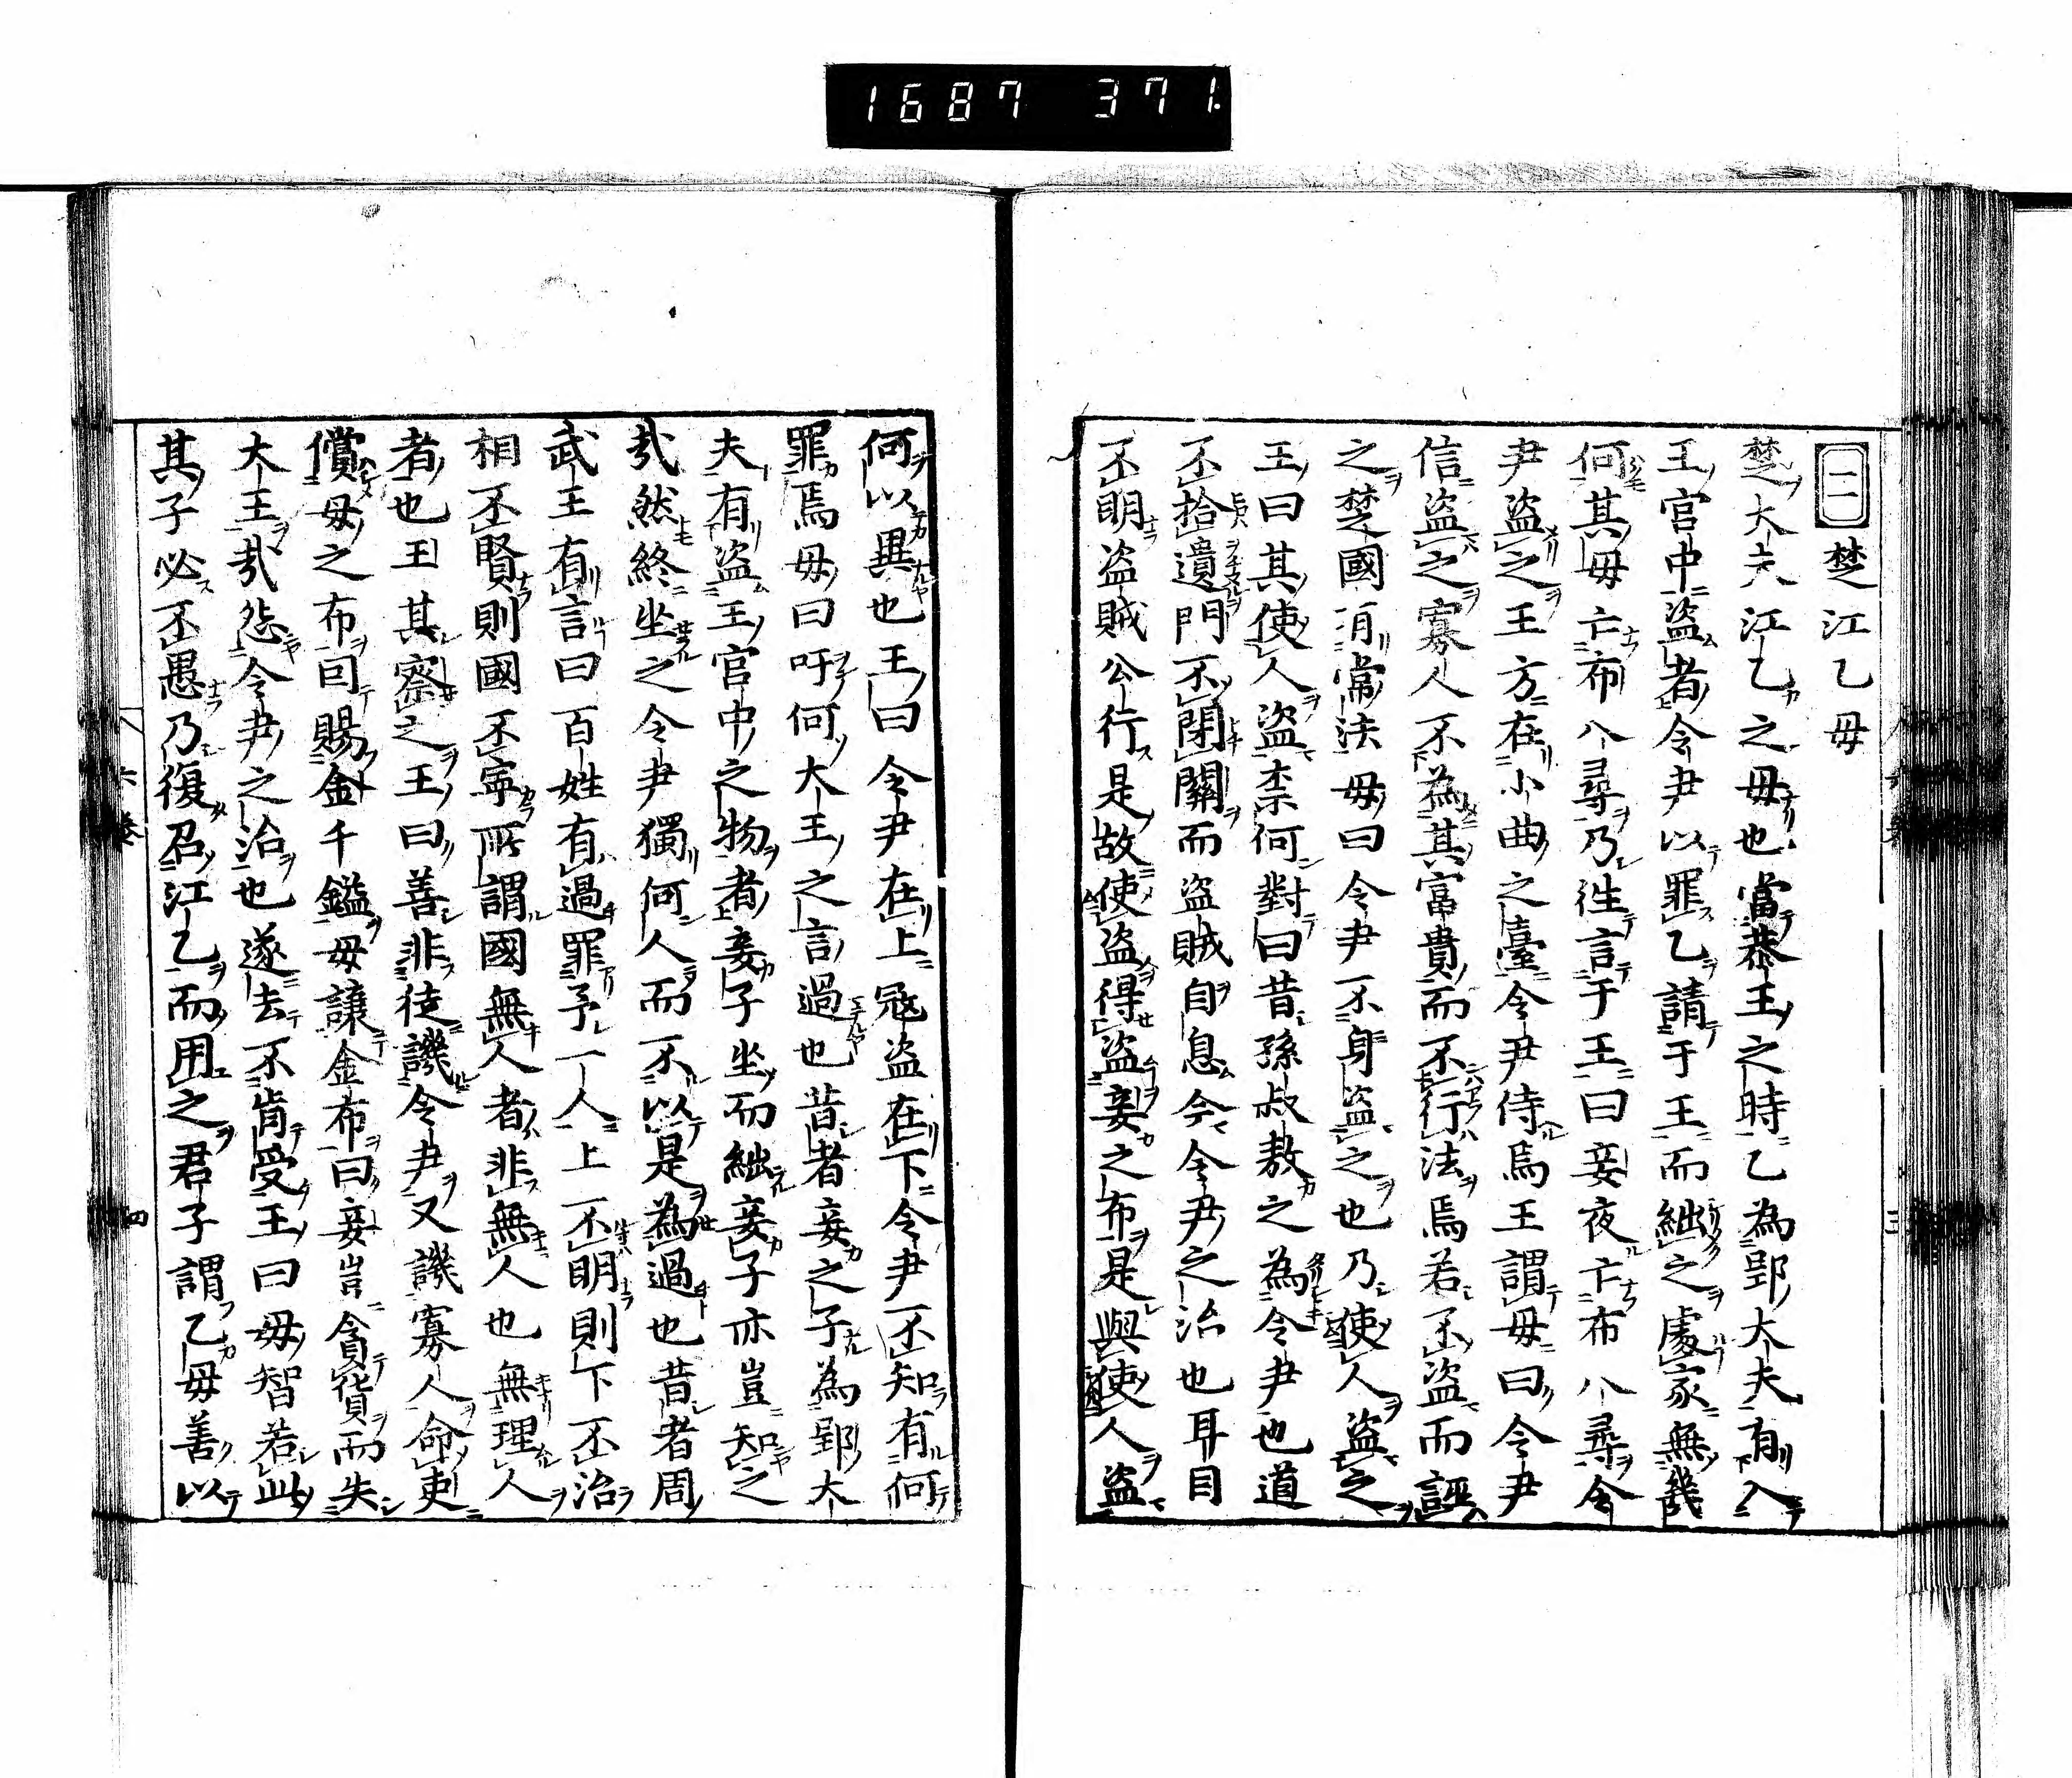 1687 371.
二 楚江乙母
楚大夫江乙之母也當恭王之時乙為郢大夫有入
王宮中盜者令尹以罪乙請于王而絀之處家無幾
何其母亡布八尋乃往言于王曰妾夜亡布八尋令
尹盜之王方在小曲之臺令尹侍焉王謂母曰令尹
信盜之寡人不為其富貴而不行法焉若不盜而誣
之楚國有常法母曰令尹不身盜之也乃使人盜之
王曰其使人盜柰何對曰昔孫叔敖之為令尹也道
不拾遺門不閉關而盜賊自息今令尹之治也耳目
不明盜賊公行是故使盜得盜妾之布是與使人盜
何以異也王曰令尹在上寇盜在下令尹不知有何
罪焉母曰吁何大王之言過也昔者妾之子為郢大
夫有盜王宮中之物者妾子坐而絀妾子亦豈知之
哉然終坐之令尹獨何人而不以是為過也昔者周
武王有言曰百姓有過罪予一人上不明則下不治
相不賢則國不寧所謂國無人者非無人也無理人
者也王其察之王曰善非徒譏令尹又譏寡人命吏
償母之布囙賜金千鎰母讓金布曰妾豈貪貨而失
大王哉怨令尹之治也遂去不肯受王曰母智若此
其子必不愚乃復召江乙而用之君子謂乙母善以
六卷
四